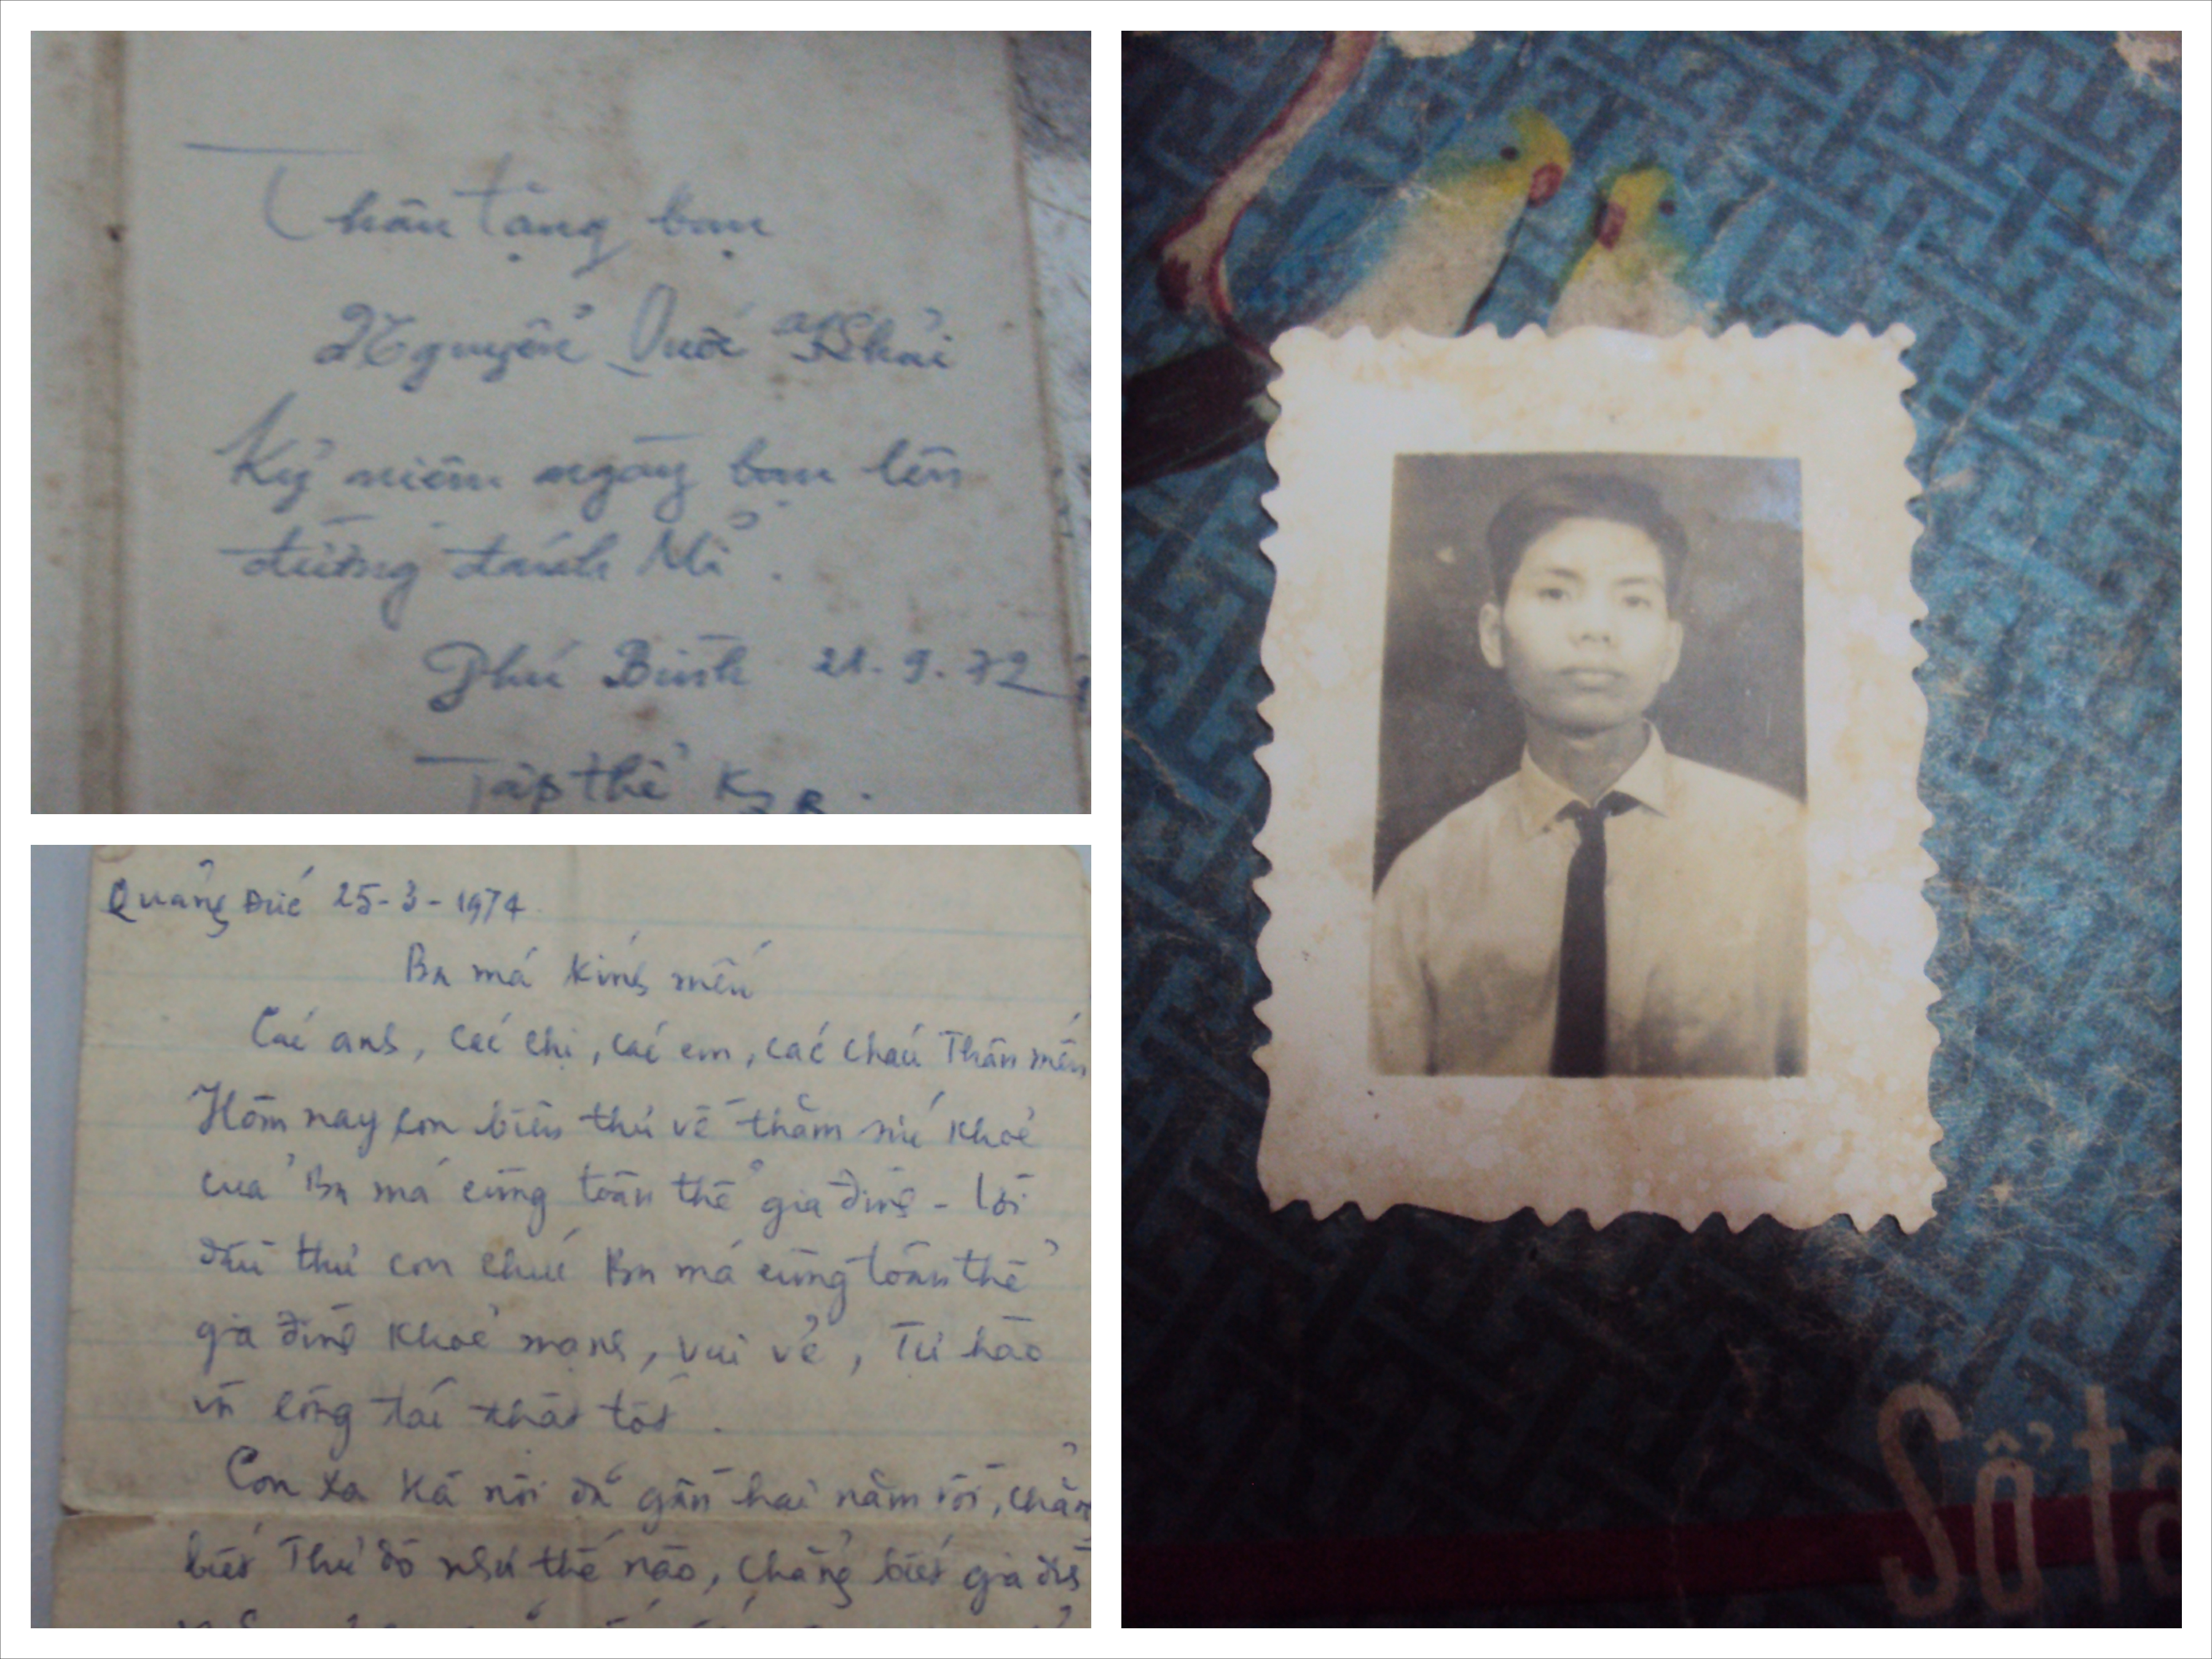 Thân tặng bạn
Nguyễn Quốc Khải
Kỷ niệm ngày bạn lên
đường đánh Mĩ.
Phú Bình 21.9.72
Tập thể
Quảng Đức 25-3-1974
Ba má kính mến
Các anh, các chị, các em, các cháu Thân mến
Hôm nay con biên thư về thăm sức khoẻ
của Ba má cùng toàn thể gia đình - lời
đầu thư con chúc Ba má cùng toàn thể
gia đình khoẻ mạnh, vui vẻ, Tự hào
và công tác thật tốt.
Con xa Hà nội đã gần hai năm rồi, chẳng
biết Thủ đô như thế nào, chẳng biết gia đình
Sổ ta